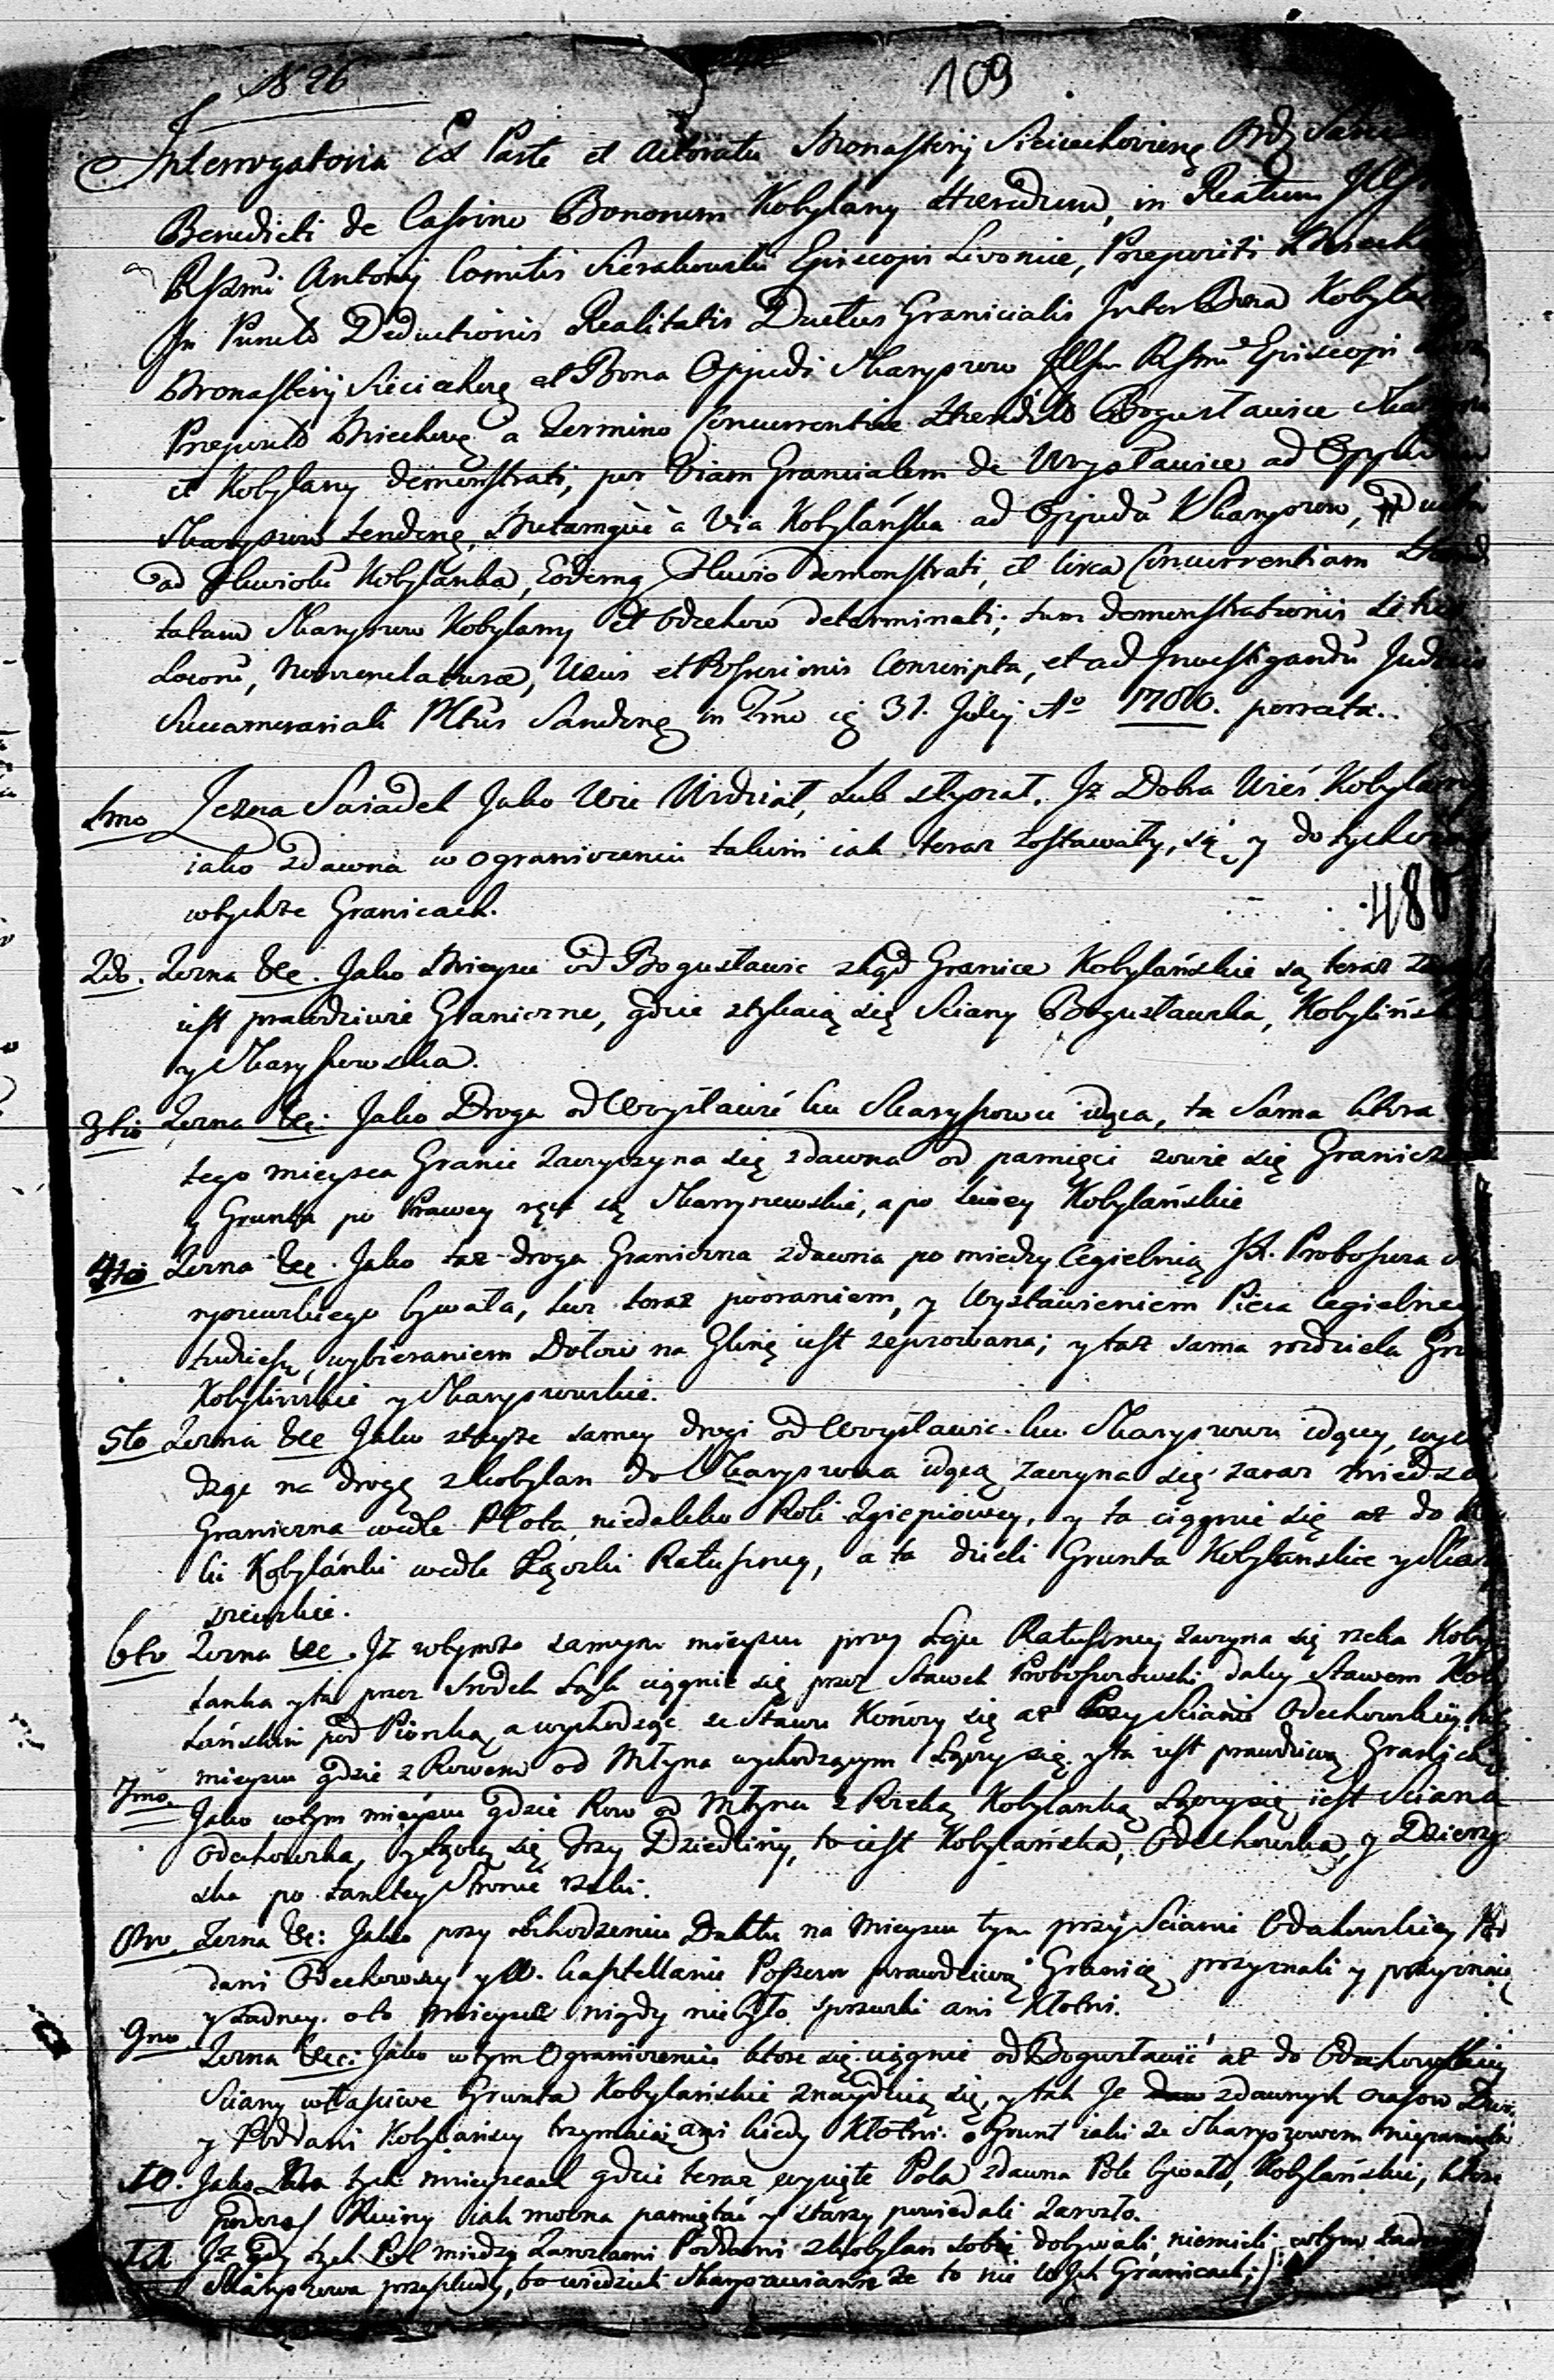 N 26
109
Interrogatoria Ex Parte et Actoratu Monasterij Sieciechoviens Ord Sancti
Benedicti de Cassino Bonorum Kobylany Hæredum, in Reatum Illsmi
Rssmi Antonij Comitis Sierakowski Episcopi Livoniæ, Præpositi Miecho
In Puncto Deductionis Realitatis Ductus Granicialis Inter Bona Kobylany
Monasterij Sieciechov et Bona Oppidi Skaryszew Illsmi Rssmi Episcopi
Præpositi Miechov a Termino Concurrentiæ Hæredit Bogusławice
et Kobylany demonstrati, per Viam Granicialem de Woysławice ad Oppidum
Skaryszew tenden, Metamque à Via Kobylańska ad Oppidu Skaryszow, Ducta
ad Fluviolu Kobylanka, Eodemq Fluvio demonstrati, et circa Concurrentiam
tatum Skaryszew Kobylany et Odechow determinati; tum demonstrationis
Locoru, Nomenclaturæ, Usus et Possessionis Conscripta, et ad Investigandu Judicio
Succamerariali Pltus Sandom in Tmno 31. Julij Ao 1786. porrecta.
1mo Zezna Swiadek Jako Wie Widział, Lub słyszał. Jż Dobra Wieś Kobylany
iako zdawna w ograniczeniu takim iak teraz zostawały, są y dotychczas
wtychże Granicach.
480
2do. Zezna &c. Jako Mieysce od Bogusławic zkąd Granice Kobylańskie są teraz
iest prawdziwie Graniczne, gdzie stykaią się Sciany Bogusławska, Kobylińska
y Skaryszowska.
3tio Zezna &c: Jako Droga od Woysławic ku Skaryszowu idąca, ta Sama ktora
tego mieysca Granic zaczyna się zdawna od pamięci zowie się Graniczna
y Grunta po Prawey ręce są Skaryszewskie, a po lewey Kobylańskie
4to Zezna &c. Jako taż droga Graniczna zdawna pomiędzy Cegielnią JX. Proboszcza
ryszewskiego bywała, lecz teraz pooraniem, y Wystawieniem Pieca Cegielnego
tudziesz wybieraniem Dołow na Glinę iest zepsowana; y taż sama rozdziela
Kobylińskie y Skaryszewskie.
5to Zezna &c Jako zteyże samey drogi od Woysławic ku Skaryszowu idącey,
dząc na drogę zKobylan do Skaryszewa idącą zaczyna się zaraz miedza
Graniczna wedle Płota, niedaleko Roli Zgiepiowey, y ta ciągnie się aż do
ki Kobylánki wedle Łączki Ratuszney, a ta dzieli Grunta Kobylanskie y Skary
szewskie.
6to Zezna &c. Jż wtymże samym mieyscu przy Łące Ratuszney zaczyna się rzeka Koby
lanka y ta przez srodek Łąk ciągnie się przez Stawek Proboszczowski daley Stawem Koby
lańskim pod Piorką, a wychodząc ze Stawu Kończy się aż Przy Scianie Odechowskiey
mieyscu gdzie z Rowem od Młyna wychodzącym Łączy się, y ta iest prawdziwą Granicą
7mo. Jako wtym mieyscu gdzie Row od Młyna z Rzeką Kobylanką Łączy się, iest Sciana
Odechowska, y Łączą się trzy Dziedziny, to iest Kobylańska, Odechowska, y
ska po tamtey Stronie rzeki.
8vo. Zezna &c: Jako przy obchodzeniu Duktu na Mieyscu tym przy Scianie Odechowskiey Pod
dani Odechowscy y W. Kasztellanic Posesor prawdziwą Granicę przyznali y przyznaią
y Żadney oto mieysce nigdy niebyło sprzeczki ani Kłotni.
9no. Zezna &c: Jako wtym Ograniczeniu ktore się ciągnie od Bogusławic aż do Odechowskiey
Sciany własciwe Grunta Kobylańskie znayduią się, y tak Je zdawnych czasow
y Poddani Kobylańscy trzymaią ani kiedy Kłotni o Grunt iaki ze Skaryszowem niepamięta
10. Jako Na tych mieyscach gdzie teraz wycięte Pola zdawna Pole bywało, Kobylańskie, ktore
podczas Ruiny iak można pamiętać y starzy powiedali zarosło.
11 Jż gdy tych Pol miedzy Zaroslami Poddani zKobylan sobie dobywali, niemieli wtym żadney
Skaryszowa przeszkody, bo wiedzieli Skaryszowianie że to nie w Ich Granicach;